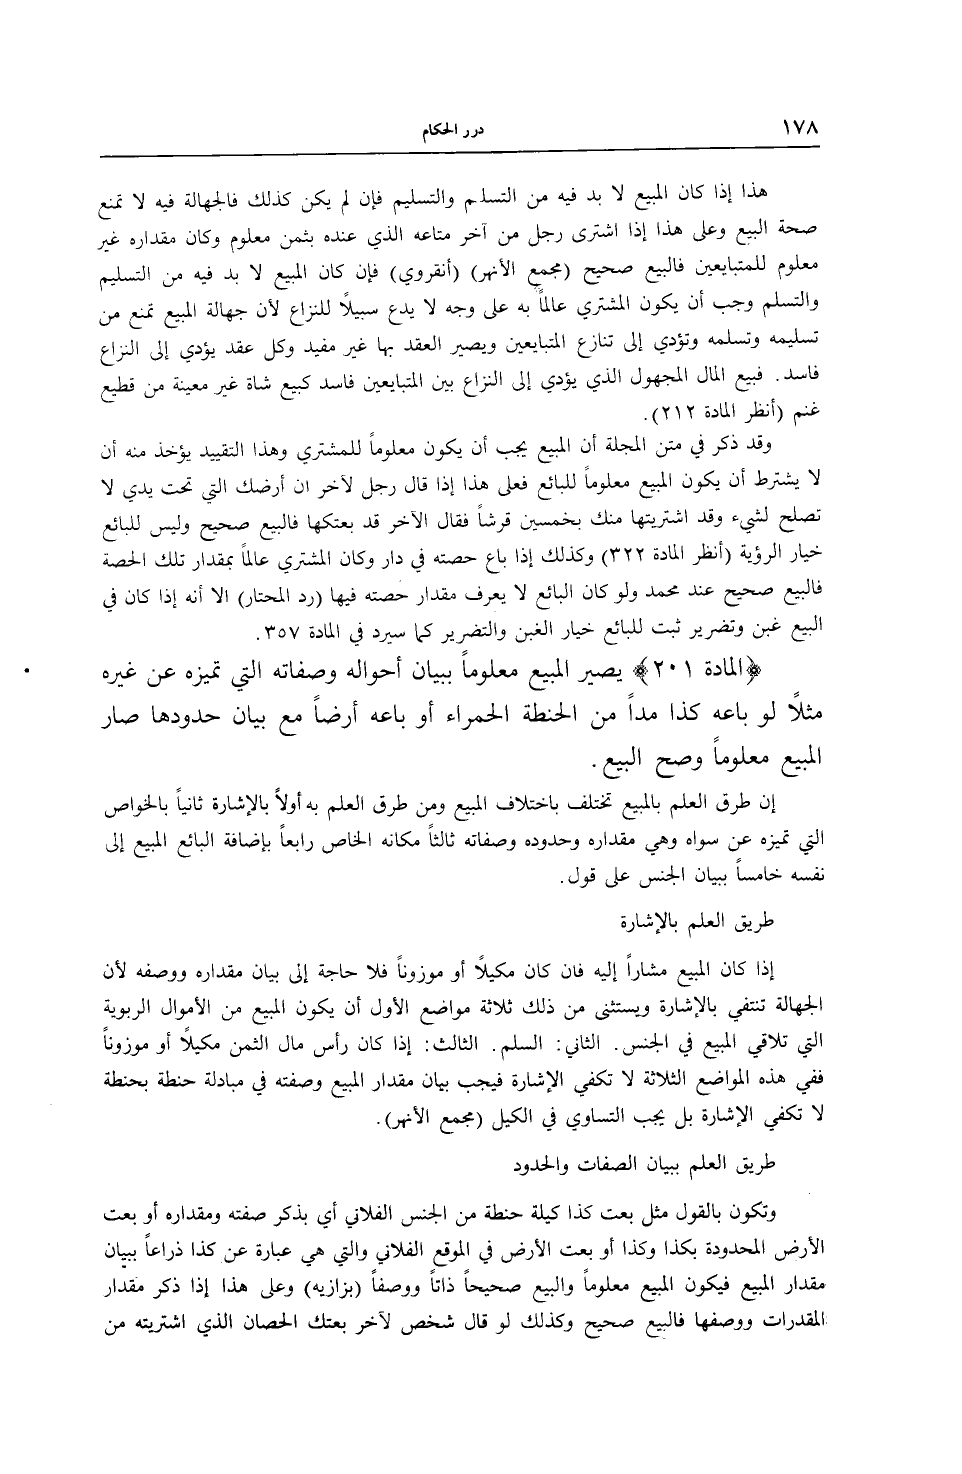 ١٧٨
درر الحكام
هذا إذا كان المبيع لا بد فيه من التسلم والتسليم فإن لم يكن كذلك فالجهالة فيه لا تمنع
صحة البيع وعلى هذا إذا اشترى رجل من آخر متاعه الذي عنده بثمن معلوم وكان مقداره غير
معلوم للمتبايعين فالبيع صحيح (مجمع الأنهر) (أنقروي) فإن كان المبيع لا بد فيه من التسليم
والتسلم وجب أن يكون المشتري عالماً به على وجه لا يدع سبيلًا للنزاع لأن جهالة المبيع تمنع من
تسليمه وتسلمه وتؤدي إلى تنازع المتبايعين ويصير العقد بها غير مفيد وكل عقد يؤدي إلى النزاع
فاسد. فبيع المال المجهول الذي يؤدي إلى النزاع بين المتبايعين فاسد كبيع شاة غير معينة من قطيع
غنم (أنظر المادة ٢١٢).
وقد ذكر في متن المجلة أن المبيع يجب أن يكون معلوماً للمشتري وهذا التقييد يؤخذ منه أن
لا يشترط أن يكون المبيع معلوماً للبائع فعلى هذا إذا قال رجل لآخر ان أرضك التي تحت يدي لا
تصلح لشيء وقد اشتريتها منك بخمسين قرشاً فقال الآخر قد بعتكها فالبيع صحيح وليس للبائع
خيار الرؤية (أنظر المادة ٣٢٢) وكذلك إذا باع حصته في دار وكان المشتري عالماً بمقدار تلك الحصة
فالبيع صحيح عند محمد ولو كان البائع لا يعرف مقدار حصته فيها (رد المحتار) الا أنه إذا كان في
البيع غبن وتضرير ثبت للبائع خيار الغبن والتضرير كما سيرد في المادة ٣٥٧.
﴿المادة ٢٠١﴾ يصير المبيع معلوماً ببيان أحواله وصفاته التي تميزه عن غيره
مثلًا لو باعه كذا مداً من الحنطة الحمراء أو باعه أرضاً مع بيان حدودها صار
المبيع معلوماً وصح البيع.
إن طرق العلم بالمبيع تختلف باختلاف المبيع ومن طرق العلم به أولاً بالإشارة ثانياً بالخواص
التي تميزه عن سواه وهي مقداره وحدوده وصفاته ثالثاً مكانه الخاص رابعاً بإضافة البائع المبيع إلى
نفسه خامساً ببيان الجنس على قول.
طريق العلم بالإشارة
إذا كان المبيع مشاراً إليه فان كان مكيلًا أو موزوناً فلا حاجة إلى بيان مقداره ووصفه لأن
الجهالة تنتفي بالإشارة ويستثنى من ذلك ثلاثة مواضع الأول أن يكون المبيع من الأموال الربوية
التي تلاقي المبيع في الجنس. الثاني: السلم. الثالث: إذا كان رأس مال الثمن مكيلًا أو موزوناً
ففي هذه المواضع الثلاثة لا تكفي الإشارة فيجب بيان مقدار المبيع وصفته في مبادلة حنطة بحنطة
لا تكفي الإشارة بل يجب التساوي في الكيل (مجمع الأنهر).
طريق العلم ببيان الصفات والحدود
وتكون بالقول مثل بعت كذا كيلة حنطة من الجنس الفلاني أي بذكر صفته ومقداره أو بعت
الأرض المحدودة بكذا وكذا أو بعت الأرض في الموقع الفلاني والتي هي عبارة عن كذا ذراعاً ببيان
مقدار المبيع فيكون المبيع معلوماً والبيع صحيحاً ذاتاً ووصفاً (بزازيه) وعلى هذا إذا ذكر مقدار
المقدرات ووصفها فالبيع صحيح وكذلك لو قال شخص لآخر بعتك الحصان الذي اشتريته من